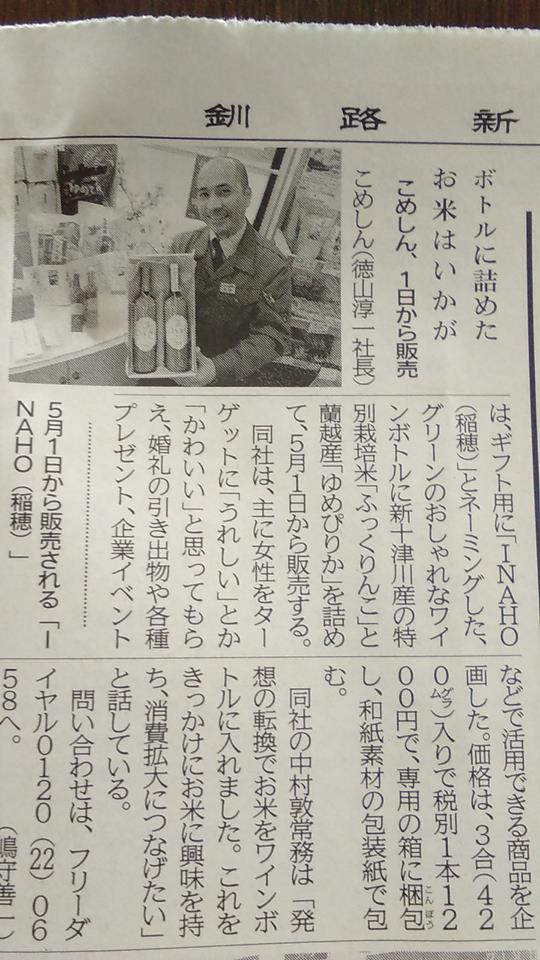 釧路新
ボトルに詰めた
お米はいかが
こめしん、1日から販売
こめしん(徳山淳一社長)
は、ギフト用に「INAHO
(稲穂)」とネーミングした、
グリーンのおしゃれなワイ
ンボトルに新十津川産の特
別栽培米「ふっくりんこ」と
蘭越産「ゆめぴりか」を詰め
て、5月1日から販売する。
同社は、主に女性をター
ゲットに「うれしい」とか
「かわいい」と思ってもら
え、婚礼の引き出物や各種
プレゼント、企業イベント
などで活用できる商品を企
画した。価格は、3合(42
0グラム)入りで税別1本12
00円で、専用の箱に梱包こんぽう
し、和紙素材の包装紙で包
む。
同社の中村敦常務は「発
想の転換でお米をワインボ
トルに入れました。これを
きっかけにお米に興味を持
ち、消費拡大につなげたい」
と話している。
問い合わせは、フリーダ
イヤル0120(22)06
58へ。
(嶋守善一)
5月1日から販売される「I
NAHO(稲穂)」